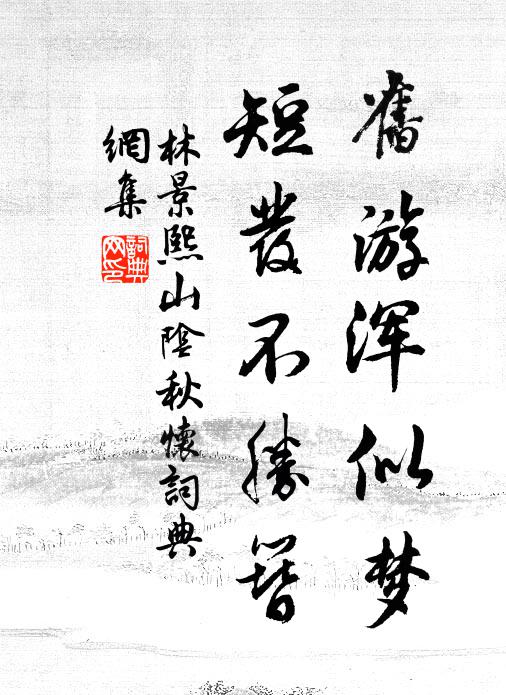 舊游浑似梦
短發不勝簪
林景熙山陰秋懷詞典
網集
詞典
网印